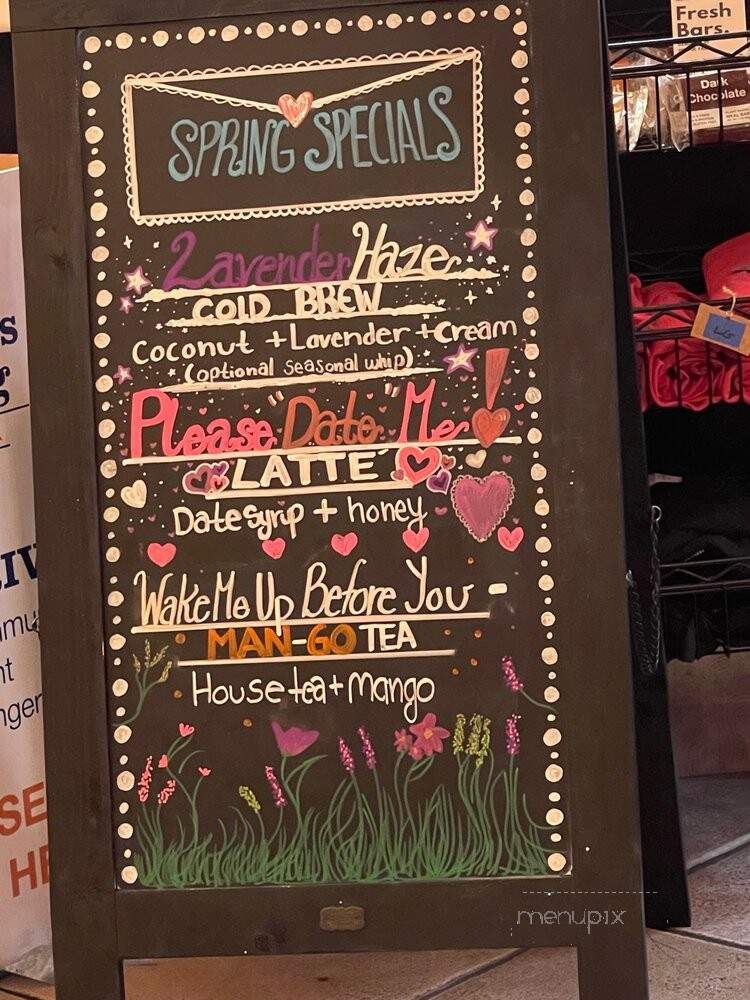 SPRING SPECIALS
Lavender Haze
COLD BREW
Coconut + Lavender + Cream
(optional seasonal whip)
Please "Date" Me!
LATTE
Date syrup + honey
Wake Me Up Before You -
MAN-GO TEA
House tea + Mango
Fresh
Bars.
Dark
Chocolate
LG
menupix